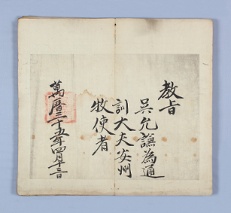 教旨
吳允謙為通
訓大夫安州
牧使者
萬曆三十五年四月十三日